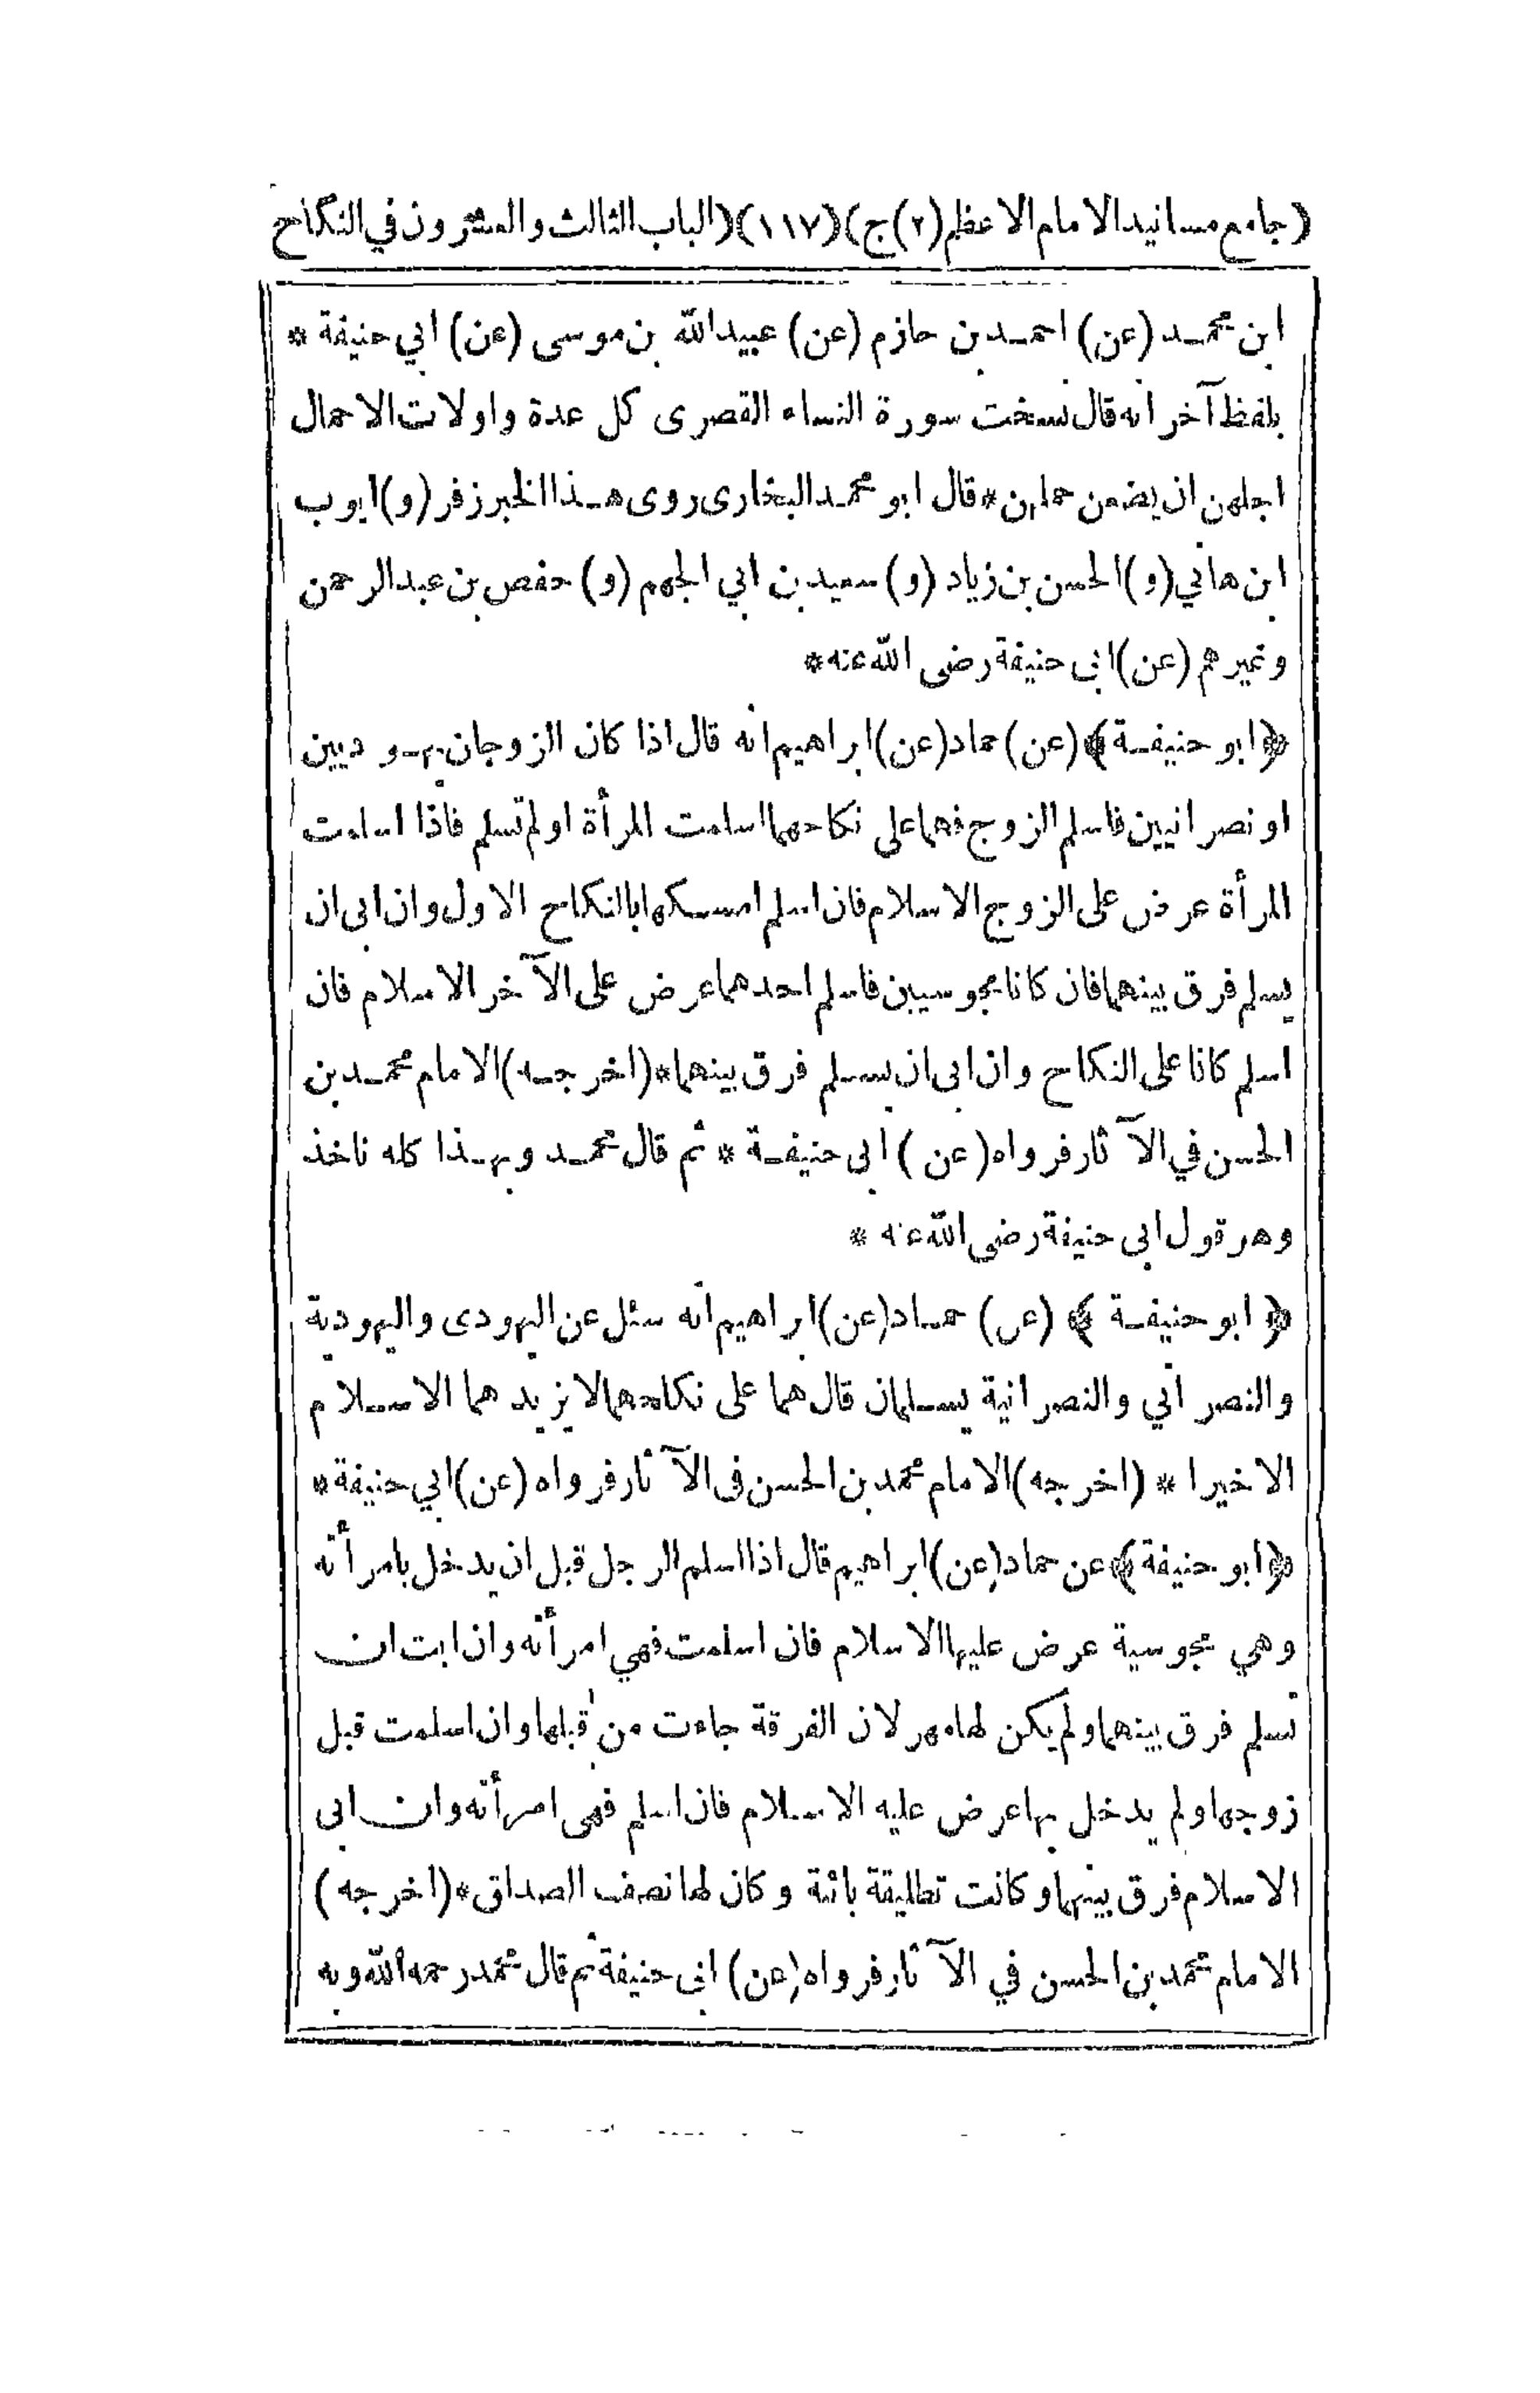 (جامع مسانيد الامام الاعظم(٢)ج)(١١٧)(الباب الثالث والعشرون في النكاح
ابن محمد (عن) احمد بن حازم (عن) عبيد الله بن موسى (عن) ابي حنيفة *
بلفظ آخر انه قال نسخت سورة النساء القصرى كل عدة واولات الاحمال
اجلهن ان يضعن حملهن * قال ابو محمد البخارى روى هذا الخبر زفر (و) ايوب
ابن هاني (و) الحسن بن زياد (و) سعيد بن ابي الجهم (و) حفص بن عبد الرحمن
وغيرهم (عن) ابى حنيفة رضى الله عنه *
﴿ابو حنيفة﴾ (عن) حماد (عن) ابراهيم انه قال اذا كان الزوجان يهوديين
او نصرانيين فاسلم الزوج فهما على نكاحهما اسلمت المرأة او لم تسلم فاذا اسلمت
المرأة عرض على الزوج الاسلام فان اسلم امسكها بالنكاح الاول وان ابى ان
يسلم فرق بينهما فان كانا مجوسيين فاسلم احدهما عرض على الآخر الاسلام فان
اسلم كانا على النكاح وان ابى ان يسلم فرق بينهما * (اخرجه) الامام محمد بن
الحسن في الآثار فرواه (عن) ابى حنيفة * ثم قال محمد وبهذا كله ناخذ
وهو قول ابى حنيفة رضى الله عنه *
﴿ابو حنيفة﴾ (عن) حماد (عن) ابراهيم انه سئل عن اليهودى واليهودية
والنصراني والنصرانية يسلمان قال هما على نكاحهما لا يزيدهما الاسلام
الاخيرا * (اخرجه) الامام محمد بن الحسن فى الآثار فرواه (عن) ابي حنيفة *
﴿ابو حنيفة﴾ عن حماد (عن) ابراهيم قال اذا اسلم الرجل قبل ان يدخل بامرأته
وهي مجوسية عرض عليها الاسلام فان اسلمت فهي امرأته وان ابت ان
تسلم فرق بينهما ولم يكن لها مهر لان الفرقة جاءت من قبلها وان اسلمت قبل
زوجها ولم يدخل بها عرض عليه الاسلام فان اسلم فهى امرأته وان ابى
الاسلام فرق بينهما وكانت تطليقة بائنة وكان لها نصف الصداق * (اخرجه)
الامام محمد بن الحسن في الآثار فرواه (عن) ابى حنيفة ثم قال محمد رحمه الله وبه